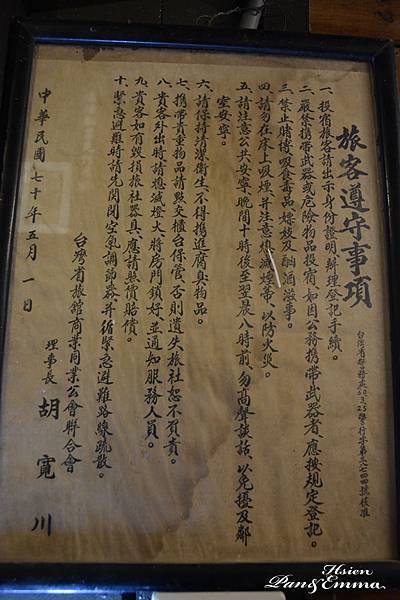 旅客遵守事項
一、投宿旅客請出示身份證明辦理登記手續。
二、嚴禁携帶武器或危險物品投宿、如因公務携帶武器者、應按規定登記。
三、禁止賭博吸食毒品嫖妓及酗酒滋事。
四、請勿在床上吸煙、并注意熄滅煙蒂、以防火災。
五、請注意公共安寧、晚間十時後至翌晨八時前、勿高聲談話、以免擾及鄰
室安寧。
六、請保持清潔衛生、不得携進腐臭物品。
七、携帶貴重物品請點交櫃台保管、否則遺失旅社恕不負責。
八、貴客外出時請熄滅燈火將房門鎖好、並通知服務人員。
九、貴客如有毀損旅社器具、應請照價賠償。
十、緊急避難時請先関閉空氣調節器、并循緊急避難路線疏散。
台灣省旅館商業同業公會聯合會
理事長 胡寬川
中華民國七十年五月一日
Hsien
Pan&Emma